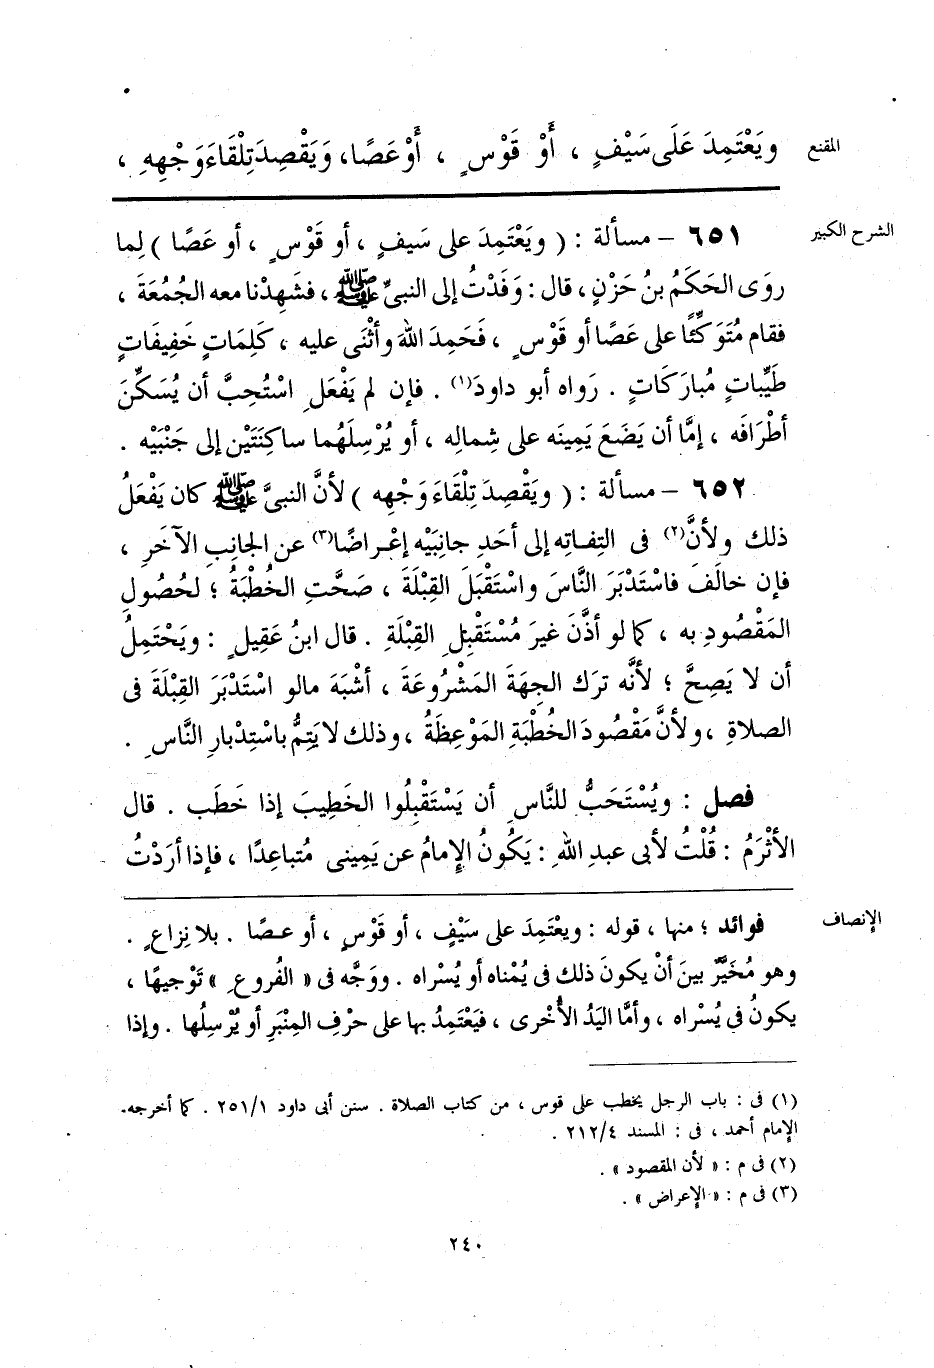 المقنع
ويَعْتَمِدَ عَلَى سَيْفٍ ، أَوْ قَوْسٍ ، أَوْ عَصًا، وَيَقْصِدَ تِلْقَاءَ وَجْهِهِ ،
الشرح الكبير
٦٥١ – مسألة : ( ويَعْتَمِدَ على سَيفٍ ، أو قَوْسٍ ، أو عَصًا ) لِما
روَى الحَكَمُ بنُ حَزْنٍ ، قال : وَفَدْتُ إلى النبيِّ ﷺ ، فشَهِدْنا معه الجُمُعَةَ ،
فقام مُتَوَكِّئًا على عَصًا أو قَوْسٍ ، فَحَمِدَ اللهَ وأثْنَى عليه ، كَلِماتٍ خَفِيفَاتٍ
طَيِّباتٍ مُبارَكَاتٍ . رَواه أبو داودَ(١) . فإن لم يَفْعَلِ اسْتُحِبَّ أن يُسَكِّنَ
أطْرَافَه ، إمَّا أن يَضَعَ يَمِينَه على شِمالِه ، أو يُرْسِلَهُما ساكِنَتَيْن إلى جَنْبَيْه .
٦٥٢ – مسألة : ( ويَقْصِدَ تِلْقَاءَ وَجْهِه ) لأنَّ النبيَّ ﷺ كان يَفْعَلُ
ذلك ولأنَّ(٢) فى التِفاتِه إلى أحَدِ جانِبَيْه إعْراضًا(٣) عن الجانِبِ الآخَرِ ،
فإن خالَفَ فاسْتَدْبَرَ النَّاسَ واسْتَقْبَلَ القِبْلَةَ ، صَحَّتِ الخُطْبَةُ ؛ لحُصُولِ
المَقْصُودِ به ، كما لو أذَّنَ غيرَ مُسْتَقْبِلِ القِبْلَةِ . قال ابنُ عَقِيلٍ : ويَحْتَمِلُ
أن لا يَصِحَّ ؛ لأنَّه ترَك الجِهَةَ المَشْرُوعَةَ ، أشْبَهَ مالو اسْتَدْبَرَ القِبْلَةَ فى
الصلاةِ ، ولأنَّ مَقْصُودَ الخُطْبَةِ المَوْعِظَةُ ، وذلك لا يَتِمُّ باسْتِدْبارِ النَّاسِ .
فصل : ويُسْتَحَبُّ للنَّاسِ أن يَسْتَقْبِلُوا الخَطِيبَ إذا خَطَب . قال
الأثْرَمُ : قُلْتُ لأبى عبدِ اللهِ : يَكُونُ الإِمامُ عن يَمِينى مُتباعِدًا ، فإذا أرَدْتُ
الإنصاف
فوائد ؛ منها ، قوله : ويعْتَمِدَ على سَيْفٍ ، أو قَوْسٍ ، أو عصًا . بلا نِزاعٍ .
وهو مُخَيَّرٌ بينَ أنْ يكونَ ذلك فى يُمْناه أو يُسْراه . ووَجَّه فى « الفُروعِ » تَوْجيهًا ،
يكونُ فى يُسْراه ، وأمَّا اليَدُ الأُخْرى ، فيَعْتَمِدُ بها على حرْفِ المِنْبَرِ أو يُرْسِلُها . وإذا
(١) فى : باب الرجل يخطب على قوس ، من كتاب الصلاة . سنن أبى داود ٢٥١/١ . كما أخرجه.
الإمام أحمد ، فى : المسند ٢١٢/٤ .
(٢) فى م : « لأن المقصود » .
(٣) فى م : « الإعراض » .
٢٤٠